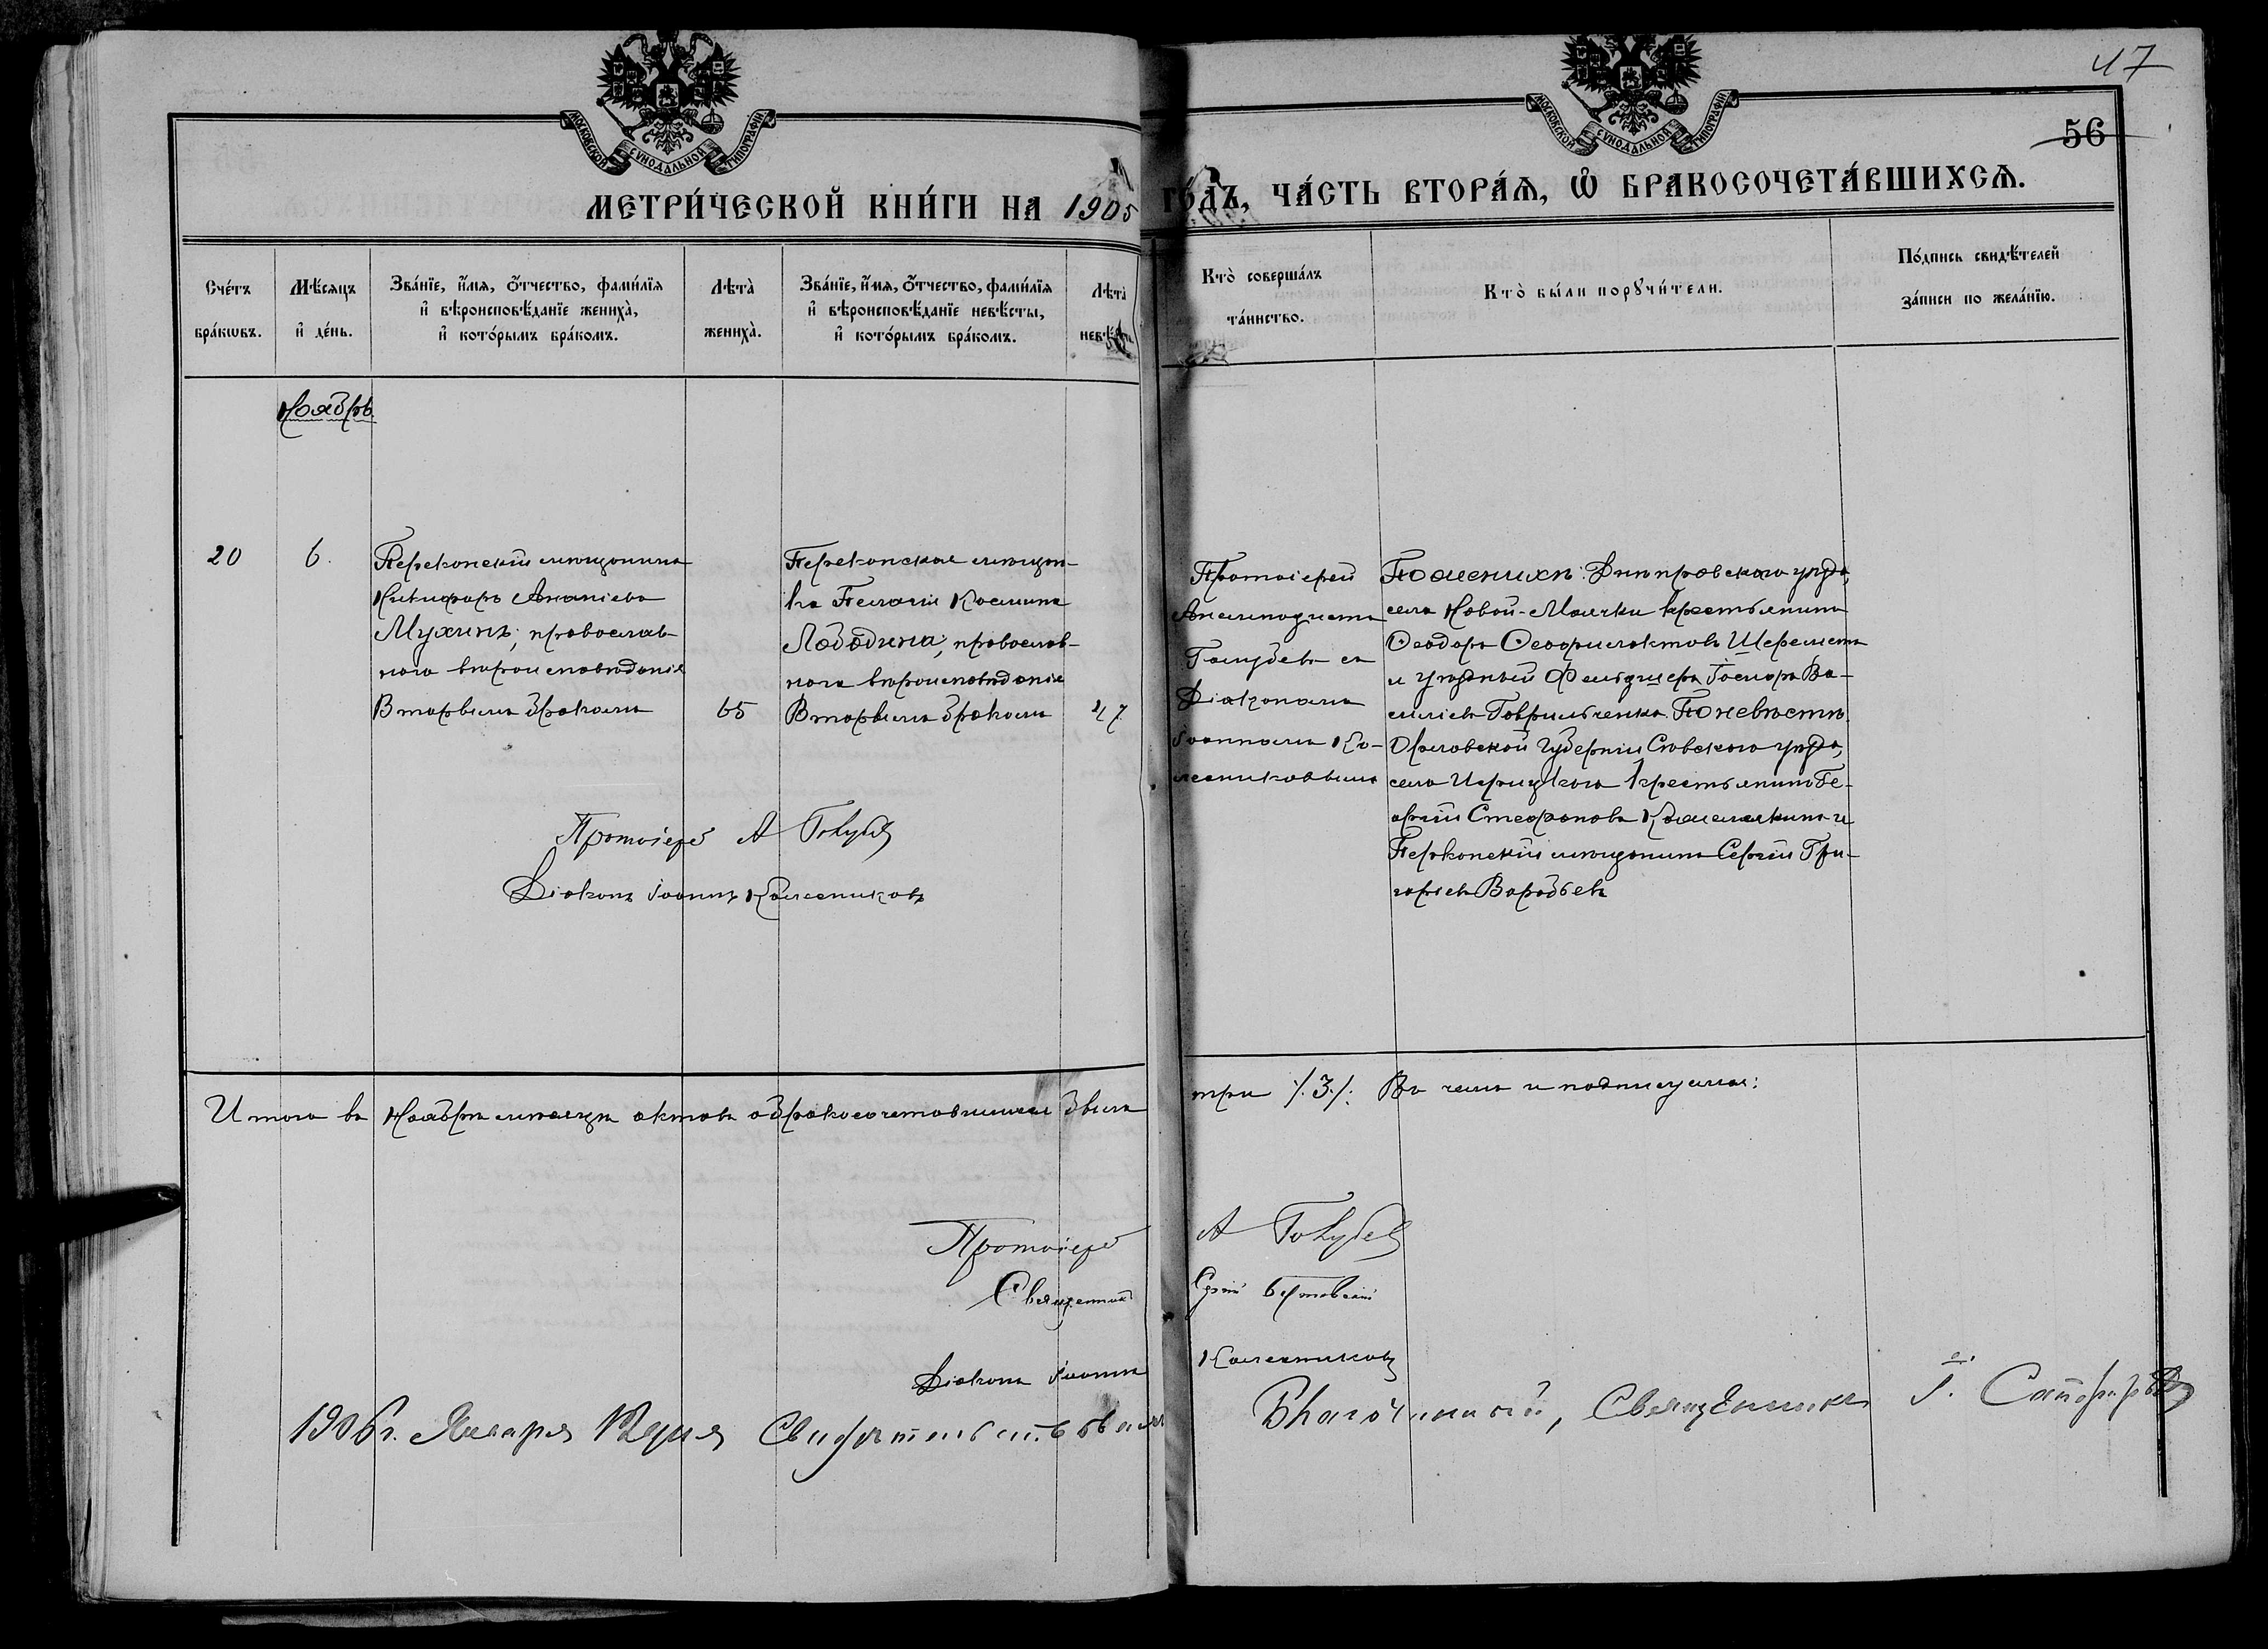 МОСКОВСКОЙ СѴНОДАЛЬНОЙ ТИПОГРАФІИ
МОСКОВСКОЙ СѴНОДАЛЬНОЙ ТИПОГРАФІИ
47
56
МЕТРИ́ЧЕСКОЙ КНИ́ГИ НА 1905 ГО́ДЪ, ЧА́СТЬ ВТОРА́Ѧ, Ѿ БРАКОСОЧЕТА́ВШИХСѦ.
Сче́тъ
бра́кѡвъ.
Мѣ́сяцъ
и҆ де́нь.
Зва́нїе, и҆́мя, ѻ҆́тчество, фами́лїя
и҆ вѣроисповѣ́данїе жениха̀,
и҆ кото́рымъ бра́комъ.
Лѣта̀
жениха̀.
Зва́нїе, и҆́мя, ѻ҆́тчество, фами́лїя
и҆ вѣроисповѣ́данїе невѣ́сты,
и҆ кото́рымъ бра́комъ.
Лѣта̀
невѣ́сты.
Кто̀ соверша́лъ
та́инство.
Кто̀ бы́ли порꙋчи́тели.
По́дпись свидѣ́телей
за́писи по жела́нїю.
Ноябрь
20
6.
Перекопскій мѣщанинъ
Никифоръ Ананіевъ
Мухинъ, православ-
наго вѣроисповѣданія
Вторымъ бракомъ
65
Перекопская мѣщан-
ка Пелагія Космина
Лободина, православ-
наго вѣроисповѣданія
Вторымъ бракомъ
47
Протоіерей
Анемподистъ
Голубевъ съ
Діакономъ
Іоанномъ Ко-
лесниковымъ
По женихѣ: Днѣпровскаго уѣзда,
села Новой-Маячки крестьянинъ
Ѳеодоръ Ѳеофилактовъ Шереметъ
и уѣздный Фельдшеръ Ва-
силіевъ Гаврильченко. По невѣстѣ:
Орловской губерніи Сѣвскаго уѣзда,
села крестьянинъ Ге-
оргій Стефановъ и
Перекопскій мѣщанинъ Сергій Гри-
горіевъ Воробьевъ
Протоіерей А Голубев
Діаконъ Іоаннъ Колесниковъ
Итого въ Ноябрѣ мѣсяцѣ актовъ о бракосочетавшихся было три /:3:/. Въ чемъ и подписуемся:
Протоіерей А Голубев
Священникъ Сергій
Діаконъ Іоаннъ Колесниковъ
1906 г. Января дня Свидѣтельствовалъ Благочинный, Священникъ І.